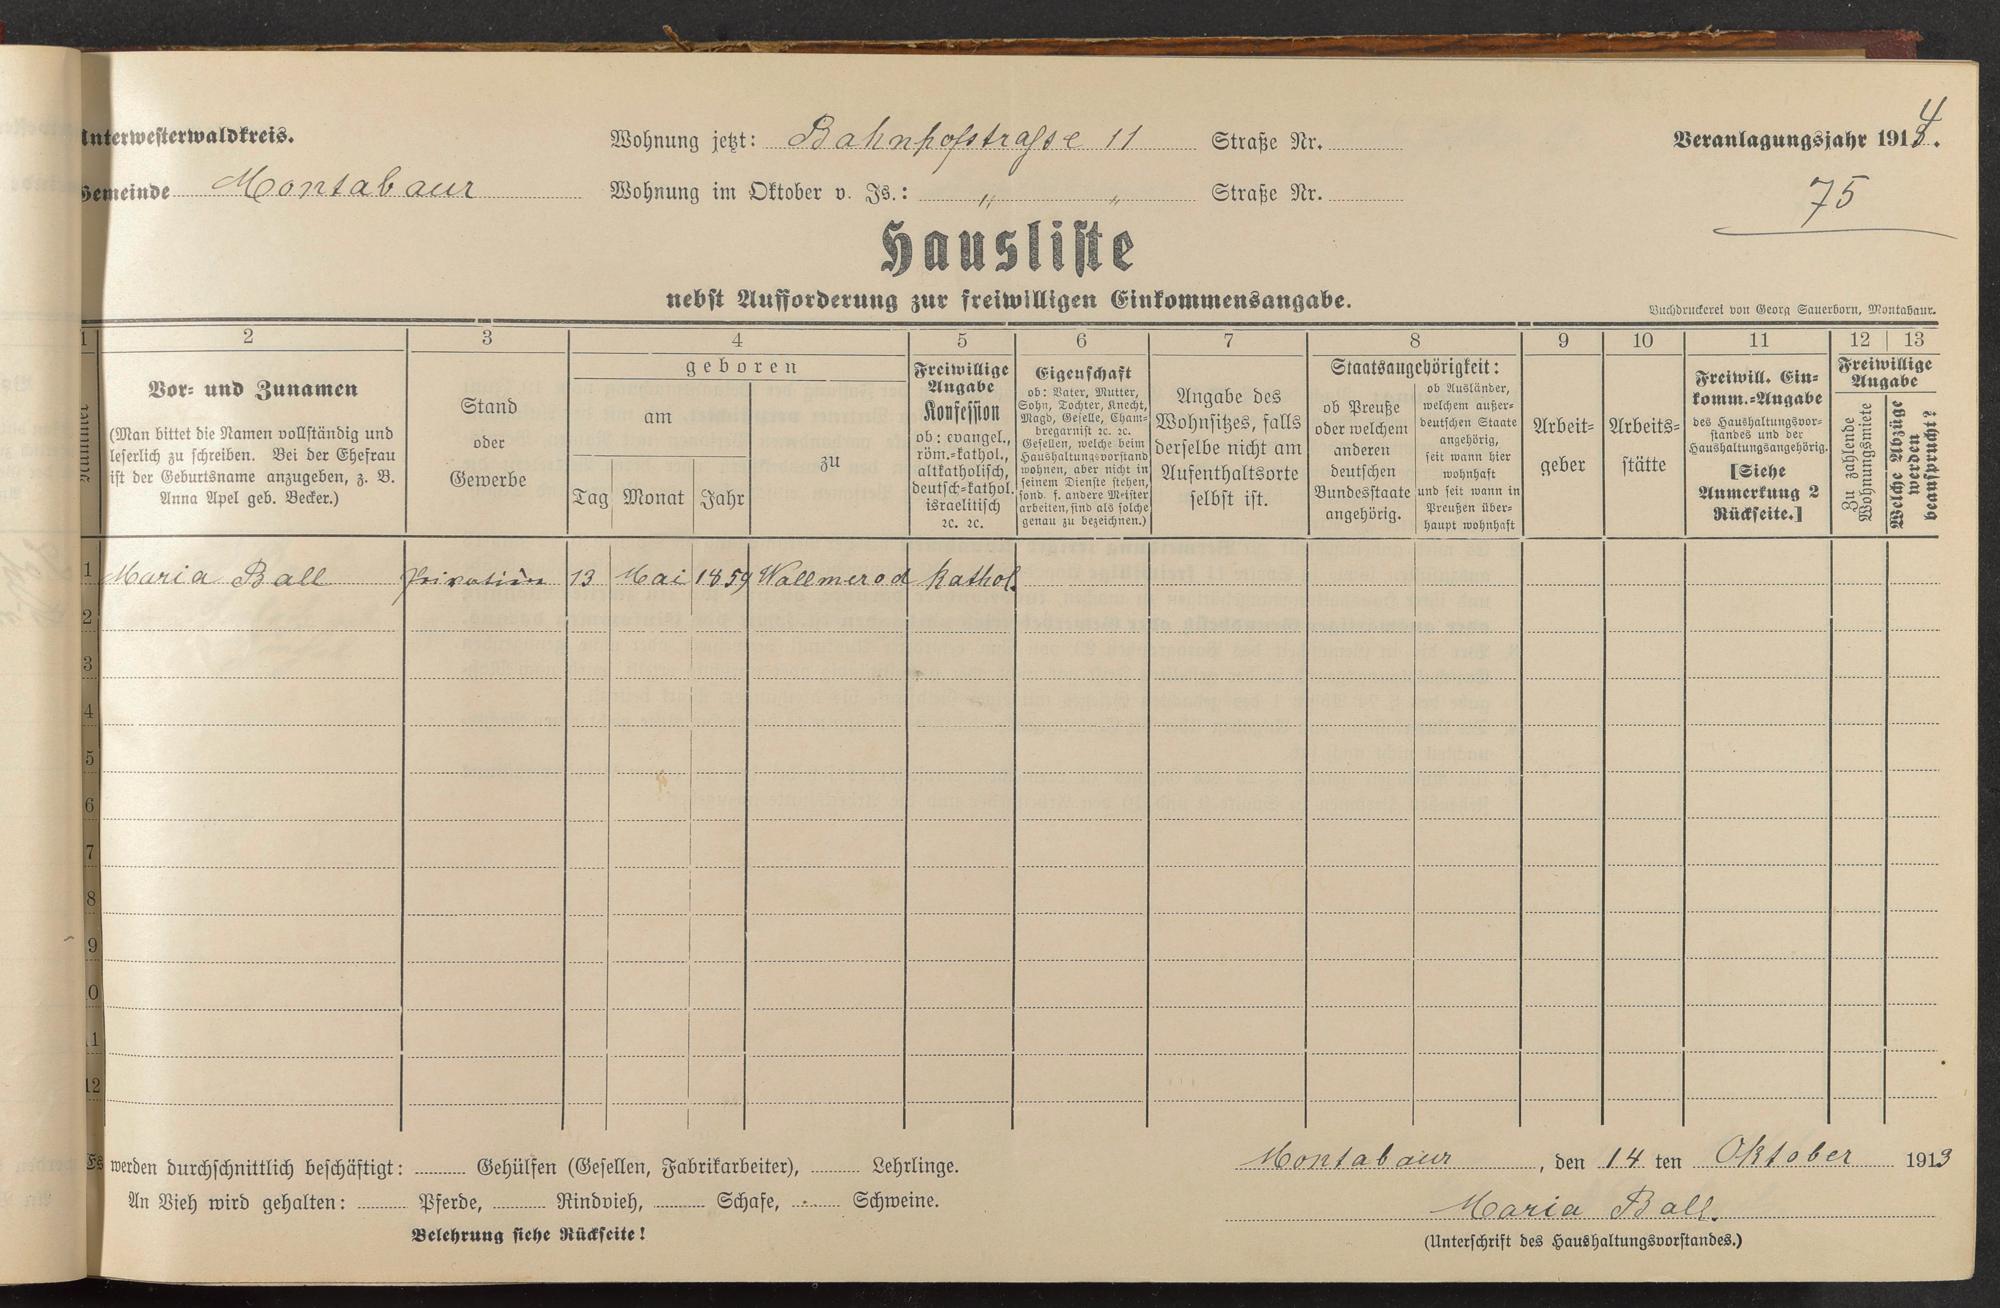 Unterwesterwaldkreis.
Wohnung jetzt: Bahnhofstrasse 11 Straße Nr.
Veranlagungsjahr 1914.
Gemeinde Montabaur
Wohnung im Oktober v. Js.: " " Straße Nr.
75
Hausliste
nebst Aufforderung zur freiwilligen Einkommensangabe.
Buchdruckerei von Georg Sauerborn, Montabaur.
1 2 3 4 5 6 7 8 9 10 11 12 13
Nummer
Vor- und Zunamen
(Man bittet die Namen vollständig und
leserlich zu schreiben. Bei der Ehefrau
ist der Geburtsname anzugeben, z. B.
Anna Apel geb. Becker.)
Stand
oder
Gewerbe
geboren
am
Tag Monat Jahr
zu
Freiwillige
Angabe
Konfession
ob: evangel.,
röm.-kathol.,
altkatholisch,
deutsch-kathol.
israelitisch
ꝛc. ꝛc.
Eigenschaft
ob: Vater, Mutter,
Sohn, Tochter, Knecht,
Magd, Geselle, Cham-
bregarnist ꝛc. ꝛc.
Gesellen, welche beim
Haushaltungsvorstand
wohnen, aber nicht in
seinem Dienste stehen,
sond. f. andere Meister
arbeiten, sind als solche
genau zu bezeichnen.)
Angabe des
Wohnsitzes, falls
derselbe nicht am
Aufenthaltsorte
selbst ist.
Staatsangehörigkeit:
ob Preuße
oder welchem
anderen
deutschen
Bundesstaate
angehörig.
ob Ausländer,
welchem außer-
deutschen Staate
angehörig,
seit wann hier
wohnhaft
und seit wann in
Preußen über-
haupt wohnhaft
Arbeit-
geber
Arbeits-
stätte
Freiwill. Ein-
komm.-Angabe
des Haushaltungsvor-
standes und der
Haushaltungsangehörig.
[Siehe
Anmerkung 2
Rückseite.]
Freiwillige
Angabe
Zu zahlende
Wohnungsmiete
Welche Abzüge
werden
beansprucht?
1 Maria Ball Privatiere 13 Mai 1859 Wallmerod kathol.
2
3
4
5
6
7
8
9
10
11
12
Es werden durchschnittlich beschäftigt: Gehülfen (Gesellen, Fabrikarbeiter), Lehrlinge.
An Vieh wird gehalten: Pferde, Rindvieh, Schafe, Schweine.
Belehrung siehe Rückseite!
Montabaur, den 14 ten Oktober 1913
Maria Ball.
(Unterschrift des Haushaltungsvorstandes.)